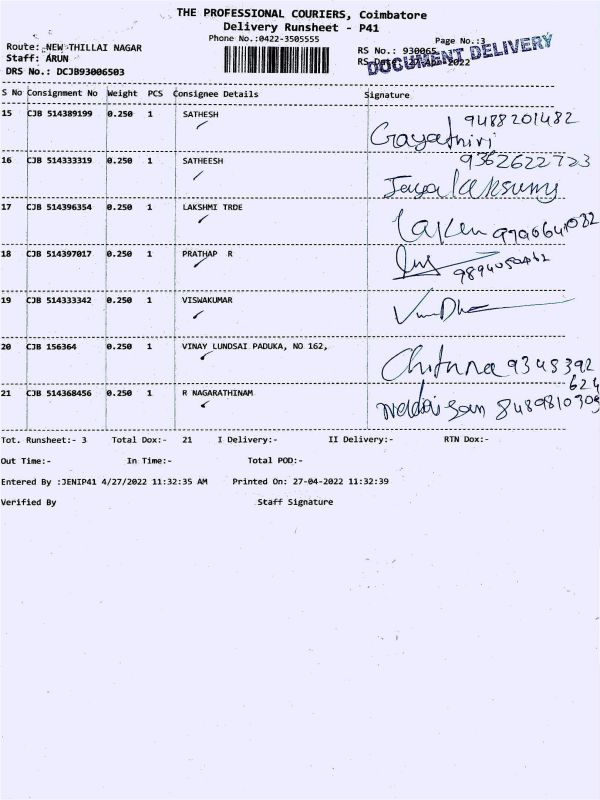 THE PROFESSIONAL COURIERS, Coimbatore
Delivery Runsheet - P41
Phone No.:0422-3505555
Page No.:3
Route: NEW THILLAI NAGAR
RS No.: 930065
Staff: ARUN
RS Date: 27 Apr 2022
DOCUMENT DELIVERY
DRS No.: DCJB93006503
S No Consignment No Weight PCS Consignee Details Signature
15 CJB 514389199 0.250 1 SATHESH
9488201482
Gayathiri
16 CJB 514333319 0.250 1 SATHEESH
9362622723
17 CJB 514396354 0.250 1 LAKSHMI TRDE
18 CJB 514397017 0.250 1 PRATHAP R
19 CJB 514333342 0.250 1 VISWAKUMAR
20 CJB 156364 0.250 1 VINAY LUNDSAI PADUKA, NO 162,
9345392
624
21 CJB 514368456 0.250 1 R NAGARATHINAM
8489810309
Tot. Runsheet:- 3 Total Dox:- 21 I Delivery:- II Delivery:- RTN Dox:-
Out Time:- In Time:- Total POD:-
Entered By :JENIP41 4/27/2022 11:32:35 AM Printed On: 27-04-2022 11:32:39
Verified By Staff Signature